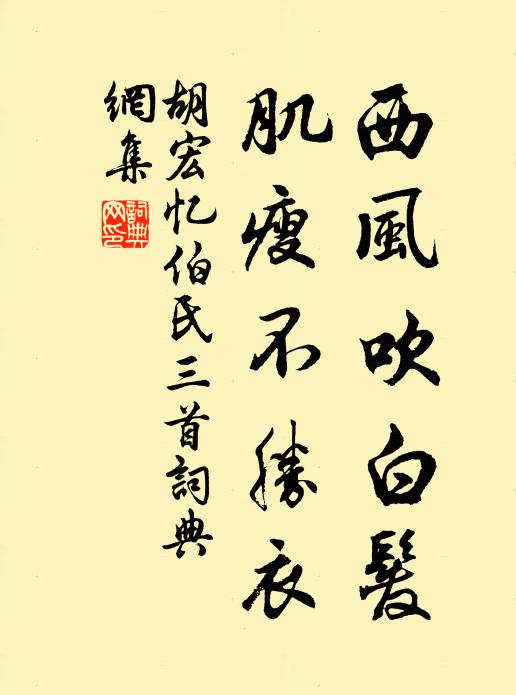 西風吹白髮
肌瘦不勝衣
胡宏忆伯氏三首詞典
網集
詞典
网印